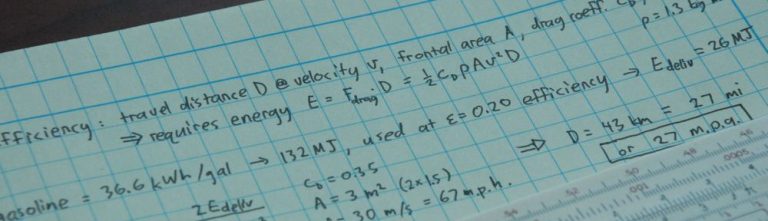 fficiency: travel distance D @ velocity v, frontal area A, drag coeff. C_D,
ρ = 1.3 kg
⇒ requires energy E = F_drag·D = ½ C_D ρ A v² D
asoline = 36.6 kWh/gal → 132 MJ, used at ε = 0.20 efficiency → E_deliv = 26 MJ
C_D = 0.35
A = 3 m² (2×1.5)
30 m/s = 67 m.p.h.
2 E_deliv
⇒ D = 43 km = 27 mi
or 27 m.p.g.!